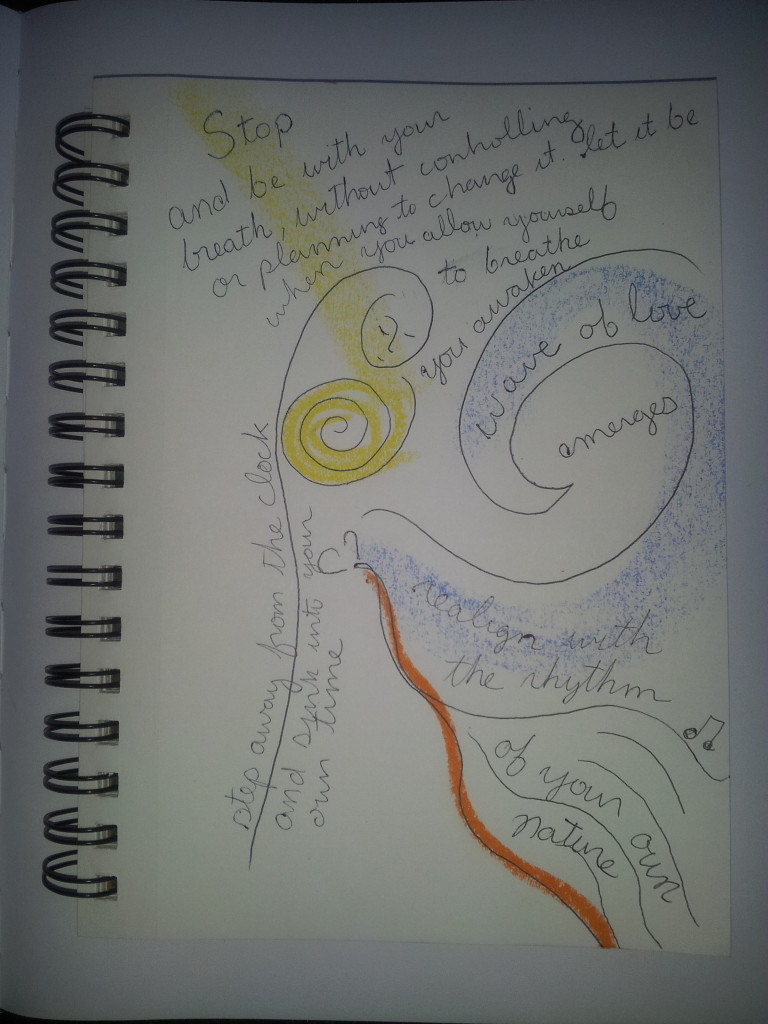 Stop
and be with your
breath, without controlling
or planning to change it. let it be
when you allow yourself
to breathe
you awaken
wave of love
emerges
realign with
the rhythm
of your own
nature
step away from the clock
and sink into your
own time